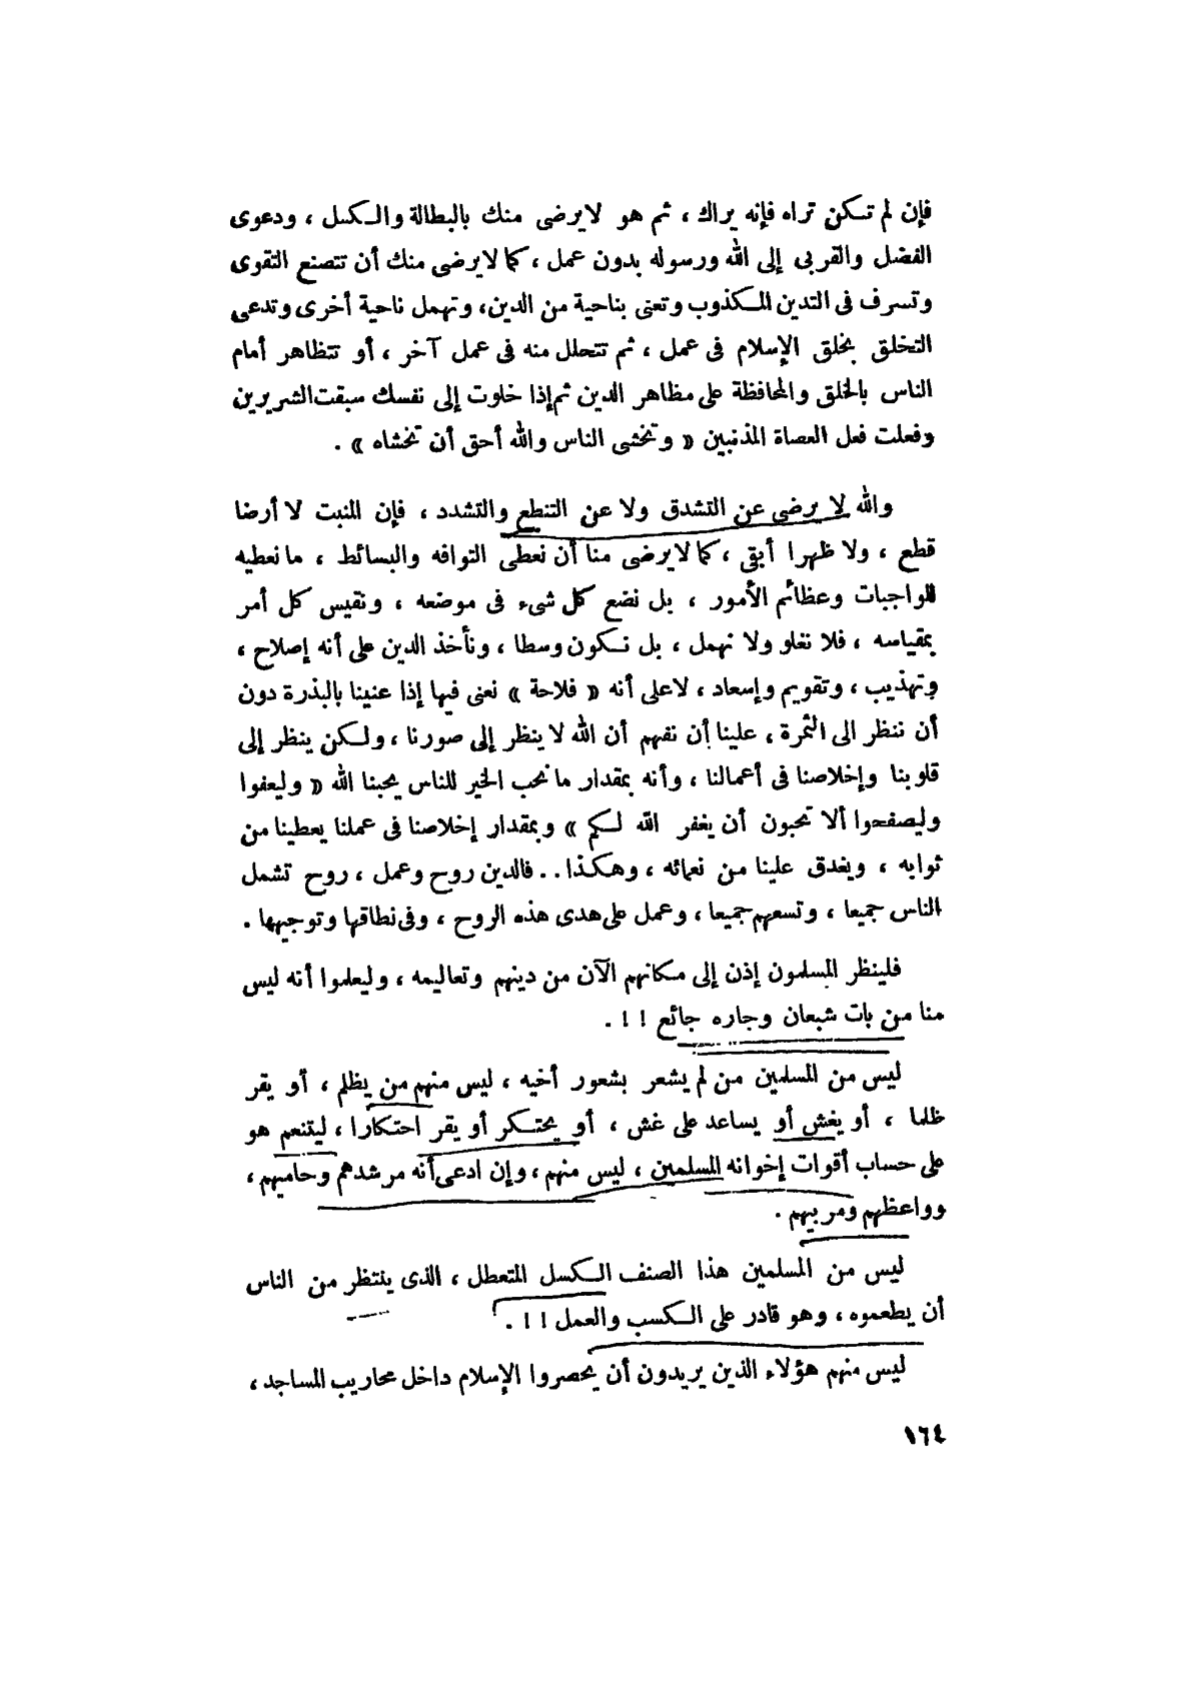 فإن لم تكن تراه فإنه يراك ، ثم هو لا يرضى منك بالبطالة والكسل ، ودعوى
الفضل والقربى إلى الله ورسوله بدون عمل ، كما لا يرضى منك أن تتصنع التقوى
وتسرف فى التدين المكذوب وتعنى بناحية من الدين، وتهمل ناحية أخرى وتدعى
التخلق بخلق الإسلام فى عمل ، ثم تتحلل منه فى عمل آخر ، أو تتظاهر أمام
الناس بالخلق والمحافظة على مظاهر الدين ثم إذا خلوت إلى نفسك سبقت الشريرين
وفعلت فعل العصاة المذنبين « وتخشى الناس والله أحق أن تخشاه » .
والله لا يرضى عن التشدق ولا عن التنطع والتشدد ، فإن المنبت لا أرضا
قطع ، ولا ظهرا أبقى ، كما لا يرضى منا أن نعطى التوافه والبسائط ، ما نعطيه
للواجبات وعظائم الأمور ، بل نضع كل شىء فى موضعه ، ونقيس كل أمر
بمقياسه ، فلا نغلو ولا نهمل ، بل نكون وسطا ، ونأخذ الدين على أنه إصلاح ،
وتهذيب ، وتقويم وإسعاد ، لا على أنه « فلاحة » نعنى فيها إذا عنينا بالبذرة دون
أن ننظر الى الثمرة ، علينا أن نفهم أن الله لا ينظر إلى صورنا ، ولكن ينظر إلى
قلوبنا وإخلاصنا فى أعمالنا ، وأنه بمقدار ما نحب الخير للناس يحبنا الله « وليعفوا
وليصفحوا ألا تحبون أن يغفر الله لكم » وبمقدار إخلاصنا فى عملنا يعطينا من
ثوابه ، ويغدق علينا من نعمائه ، وهكذا . . فالدين روح وعمل ، روح تشمل
الناس جميعا ، وتسعهم جميعا ، وعمل على هدى هذه الروح ، وفى نطاقها وتوجيهها .
فلينظر المسلمون إذن إلى مكانهم الآن من دينهم وتعاليمه ، وليعلموا أنه ليس
منا من بات شبعان وجاره جائع ! ! .
ليس من المسلمين من لم يشعر بشعور أخيه ، ليس منهم من يظلم ، أو يقر
ظلما ، أو يغش أو يساعد على غش ، أو يحتكر أو يقر احتكارا ، ليتنعم هو
على حساب أقوات إخوانه المسلمين ، ليس منهم ، وإن ادعى أنه مرشدهم وحاميهم ،
وواعظهم ومربيهم .
ليس من المسلمين هذا الصنف الكسل المتعطل ، الذى ينتظر من الناس
أن يطعموه ، وهو قادر على الكسب والعمل ! ! .
ليس منهم هؤلاء الذين يريدون أن يحصروا الإسلام داخل محاريب المساجد ،
١٦٤